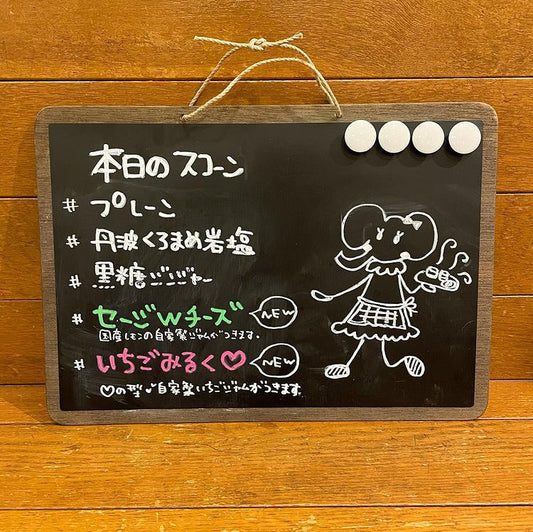 本日のスコーン
# プレーン
# 丹波くろまめ岩塩
# 黒糖ジンジャー
# セージWチーズ NEW
国産レモンの自家製ジャムがつきます。
# いちごみるく♡ NEW
♡の型♪自家製いちごジャムがつきます。